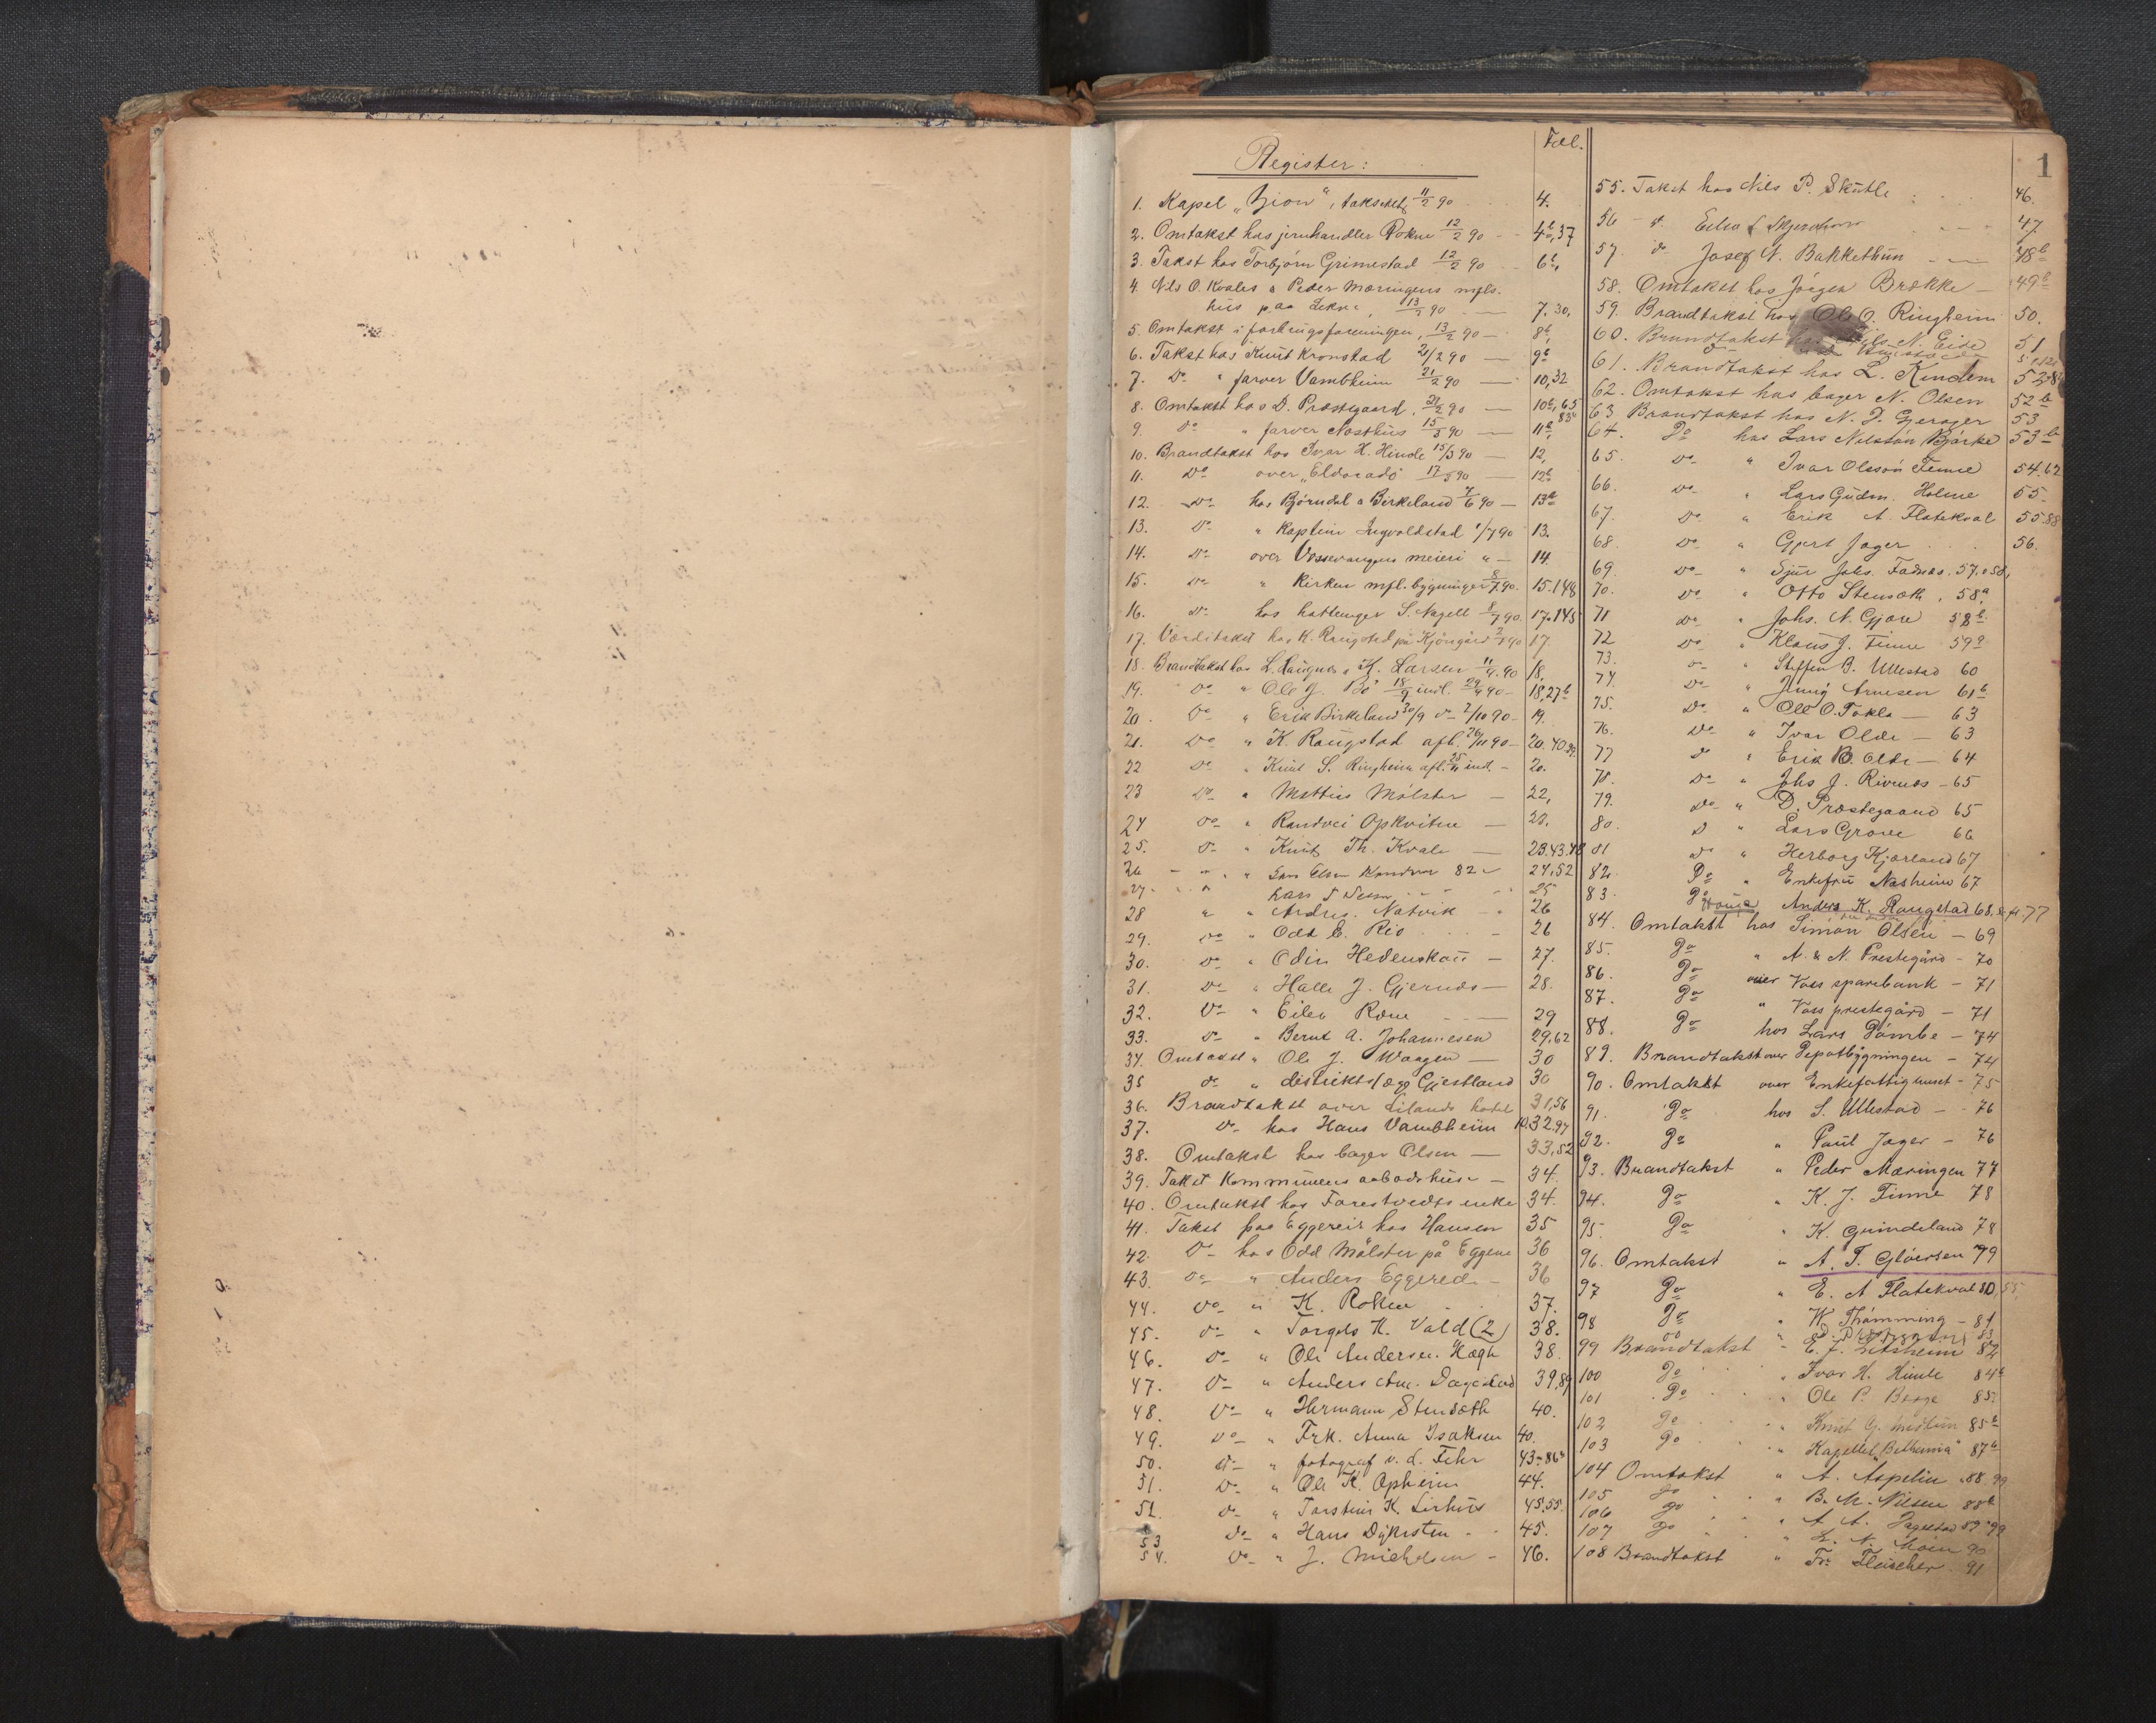 1
Register: Fol.
1. Kapel „Zion“, taksert 11/2 90 4.
2. Omtakst hos jernhandler Rokne 12/2 90 4b, 37
3. Takst hos Torbjørn Grimestad 12/2 90 6b,
4. Nils O. Kvales o Peder Mæringens mfls.
hus paa Lekve, 13/2 90 7. 30,
5. Omtakst i forbrugsforeningen, 13/2 90 8b,
6. Takst hos Knut Kronstad 21/2 90 9b
7. Do " farver Vambheim 21/2 90 10, 32
8. Omtakst hos D. Præstegaard, 21/2 90 10b, 65 83b
9. Do " farver Nasthus 15/3 90 11b,
10. Brandtakst hos Ivar H. Hinde 15/3 90 12,
11. Do over „Eldorado“ 17/5 90 12b
12. Do hos Bjørndal o Birkeland 7/6 90 13a
13. Do " Kaptein Ingvoldstad 1/7 90 13.
14. Do over Vossevangens meieri " 14.
15. Do " Kirken mfl. bygninger 8/7 90. 15. 148
16. Do hos hattemager S. Nagell 8/7 90. 17. 145
17. Værditakst hos K. Raugstad på Kjøngård 2/9 90 17.
18. Brandtakst hos L. Haugnes, K. Larsen 11/9. 90 18,
19. Do " Ole J. Bø 18/9 indl. 29/9 90 18, 27b
20. Do " Erik Birkeland 30/9 Do 2/10 90 19.
21. Do " K. Raugstad afl. 26/11 90 20. 40. 59.
22 Do " Knut S. Ringheim afl. 25/11 indl. 20.
23 Do " Mattius Mølster 22,
24 Do " Randvei Opkvitne 23.
25. Do " Knut Th. Kvale 23. 43. 48
26 " " Lars Elsen 82 24, 52
27 " " Lars 25
28 " " Andres. Natvik 26
29. Do " Odd E. Rio 26
30. Do " Odin Hedenskou 27.
31. Do " Halle J. Gjernes 28.
32. Do " Eilev Rene 29
33. Do " Bernt A. Johannesen 29, 62
34. Omtakst " Ole J. Waagen 30
35 Do " distriktslæge Gjestland 30
36. Brandtakst over Lilands hotel 31, 56
37. Do hos Hans Vambheim 10. 32. 97
38. Omtakst hos bager Olsen 33, 52
39. Takst Kommunens aabodshuse 34.
40. Omtakst hos Farestvedts enke 34.
41. Takst paa Eggereit hos Hansen 35
42. Do hos Odd Mølster på Eggene 36
43. Do " Anders Eggered. 36
44. Do " K. Rokne 37.
45. Do " Torgels K. Vald (2) 38.
46. Do " Ole Andersen. Hægh 38.
47. Do " Anders And. Dagestad 39, 89
48. Do " Hermann Stensæth 40.
49. Do " Frk. Anna Isaksen 40.
50. Do " fotograf v. d. Fehr 43-86b
51. Do " Ole K. Opheim 44.
52. Do " Torstein K. Lirhus 45, 55.
53 Do " Hans Dykesten 45.
54. Do " J. Michelsen 46.
55. Takst hos Nils P. Skutle 46.
56 " 47.
57. Do Josef N. Bakkethun 48b
58. Omtakst hos Jørgen Brække 49b
59. Brandtakst hos Ole O. Ringheim 50.
60. Brandtakst hos Nils N. Eide 51
61. Brandtakst hos L. Kindem 52
62. Omtakst hos bager N. Olsen 52b
63 Brandtakst hos N. J. Gjerager 53
64. Do hos Lars Nilssøn Bjørke 53b
65. Do " Ivar Olssøn Finne 54. 62
66. Do " Lars Gudm. Holme 55.
67. Do " Erik A. Flatekval 55. 88
68. Do " Gjert Jager 56.
69. Do " Sjur Johs. Fadnes. 57. o 58,
70. Do " Otto Stensæth, 58a
71 Do " Johs. N. Gjøre 58b
72 Do " Klaus J. Finne 59a
73. Do " Steffen B. Ullestad 60
74. Do " Arnesen 61b
75. Do " Ole O. Tokla 63
76. Do " Ivar Olde 63
77 Do " Erik B. Olde 64
78. Do " Johs J. Rivenes 65
79. Do " D. Præstegaard 65
80. Do " Lars Grove 66
81 Do " Herborg Kjørland 67
82. Do " Enkefru Nasheim 67
83. Do Anders K. Raugstad 68, 77
84. Omtakst hos Simon Olsen 69
85. Do " A. & N. Prestegård 70
86. Do over Voss sparebank 71
87. Do " Voss prestegård 71
88. Do hos Lars Dømbe 74
89. Brandtakst over Depotbygningen 74
90. Omtakst over Enkefattighuset 75
91. Do hos S. Ullestad 76
92. Do " Paul Jager 76
93. Brandtakst " Peder Mæringen 77
94. Do " K. J. Finne 78
95. Do " K. Grindeland 78
96. Omtakst " A. T. Gløersen 79
97 Do " E. A Flatekval 80, 55
98 Do " K. Thømming 81
99 Brandtakst " E. J. 82
100 Do " Ivar H. Himle 84b
101 Do " Ole P. Berge 85.
102 Do " Knut G. Midtun 85b
103 Do " Kapellet „Bethania“ 87b
104 Omtakst " A. Aspelin 88, 99
105 Do " B. M. Nilsen 88b
106 Do " A. A. Dagestad 89 99
107 Do " L. N. Moen 90
108 Brandtakst " Fr. Fleischer 91